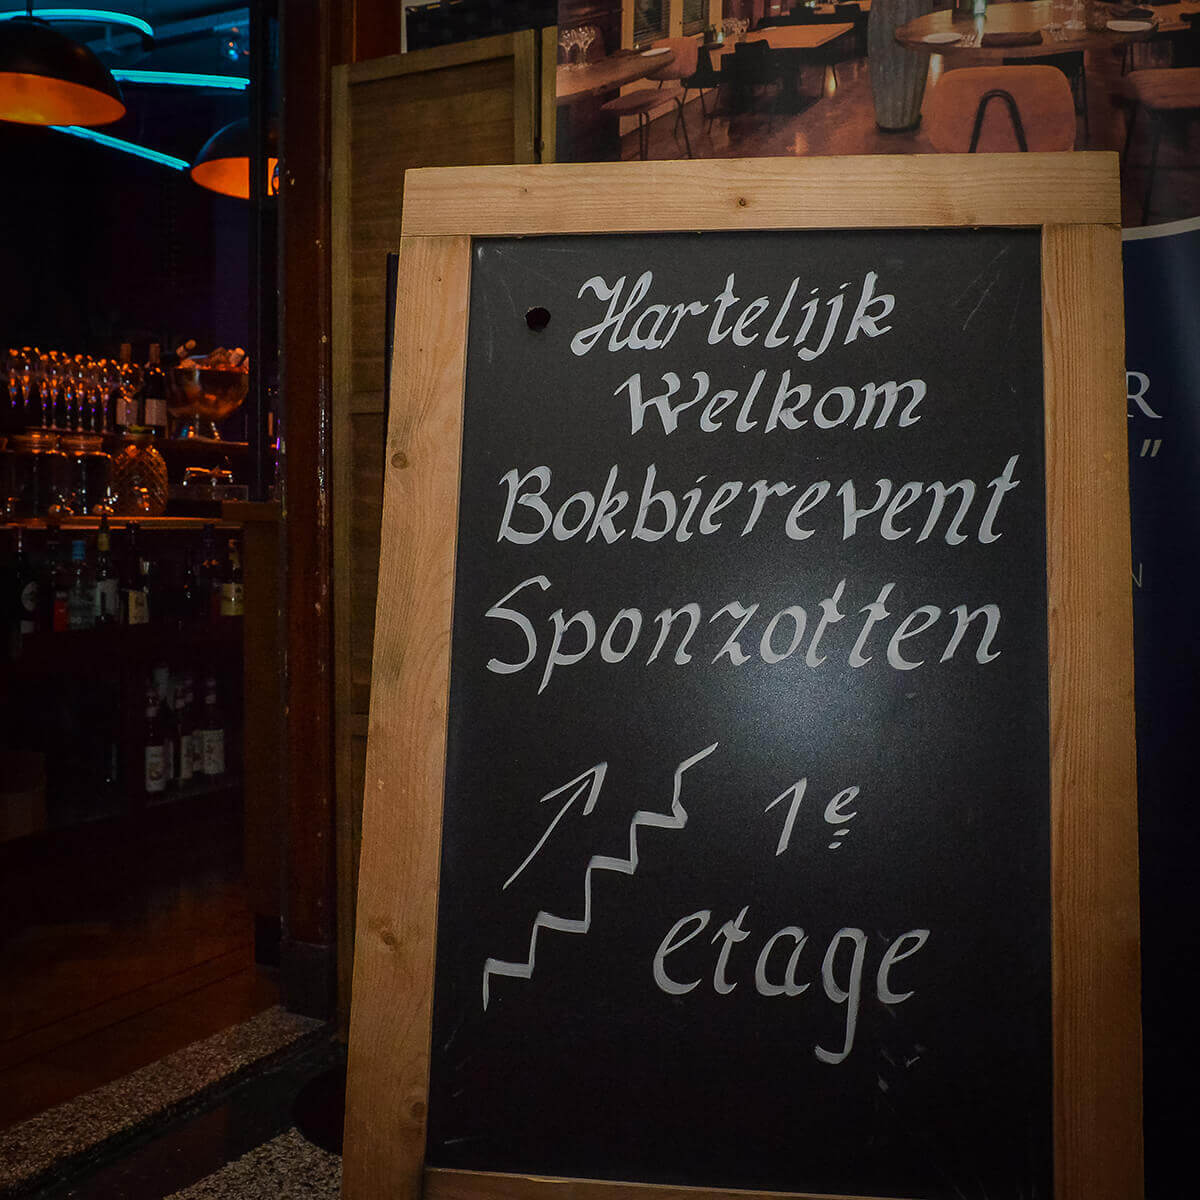 Hartelijk
Welkom
Bokbierevent
Sponzotten
1e
etage
R
"
N